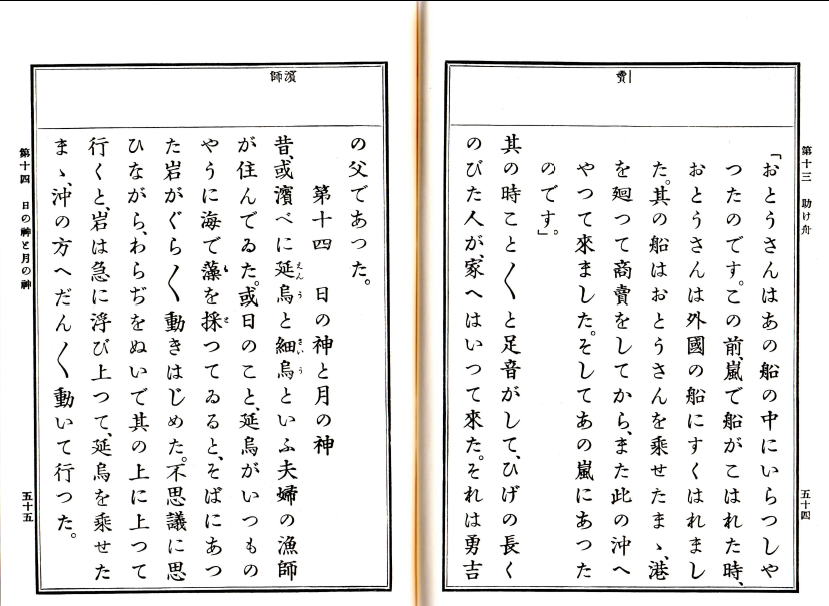 第十三 助け舟
五十四
賣
「おとうさんはあの船の中にいらつしや
つたのです。この前、嵐で船がこはれた時、
おとうさんは外國の船にすくはれまし
た。其の船はおとうさんを乘せたまゝ、港
を廻つて商賣をしてから、また此の沖へ
やつて來ました。そしてあの嵐にあつた
のです。」
其の時こと〱と足音がして、ひげの長く
のびた人が、家へはいつて來た。それは勇吉
濱師
の父であつた。
第十四 日の神と月の神
昔、或濱べに延烏と細烏といふ夫婦の漁師
が住んでゐた。或日のこと、延烏がいつもの
やうに海で藻を採つてゐると、そばにあつ
た岩がぐら〱動きはじめた。不思議に思
ひながら、わらぢをぬいで其の上に上つて
行くと、岩は急に浮び上つて、延烏を乘せた
まゝ、沖の方へだん〱動いて行つた。
第十四 日の神と月の神
五十五